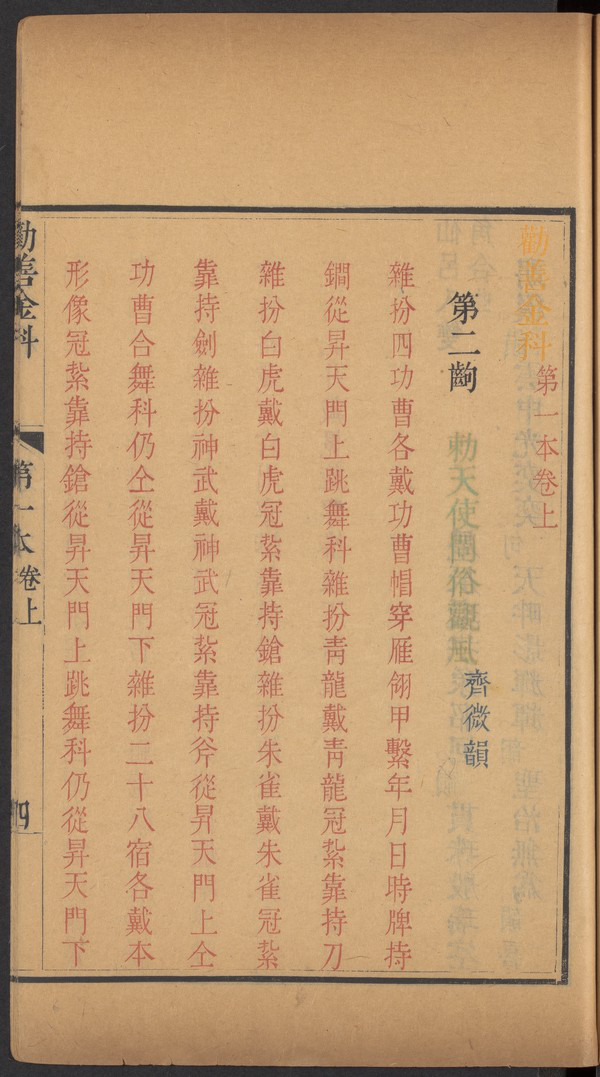 勸善金科
第一本卷上
第二齣 勅天使問俗觀風 齊微韻
雜扮四功曹各戴功曹帽穿雁翎甲繫年月日時牌持
鐧從昇天門上跳舞科雜扮青龍戴青龍冠紮靠持刀
雜扮白虎戴白虎冠紮靠持鎗雜扮朱雀戴朱雀冠紮
靠持劍雜扮神武戴神武冠紮靠持斧從昇天門上仝
功曹合舞科仍仝從昇天門下雜扮二十八宿各戴本
形像冠紮靠持鎗從昇天門上跳舞科仍從昇天門下
勸善金科 第一本卷上 四